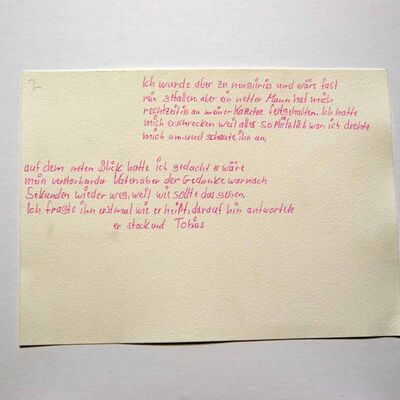 2
Ich wurde aber zu neugierig und wäre fast
rein gefallen, aber ein netter Mann hat mich
rechtzeitig an meiner Kaputze festgehalten. Ich hatte
mich erschrocken weil alles so plötzlich war ich drehte
mich um und schaute ihn an,
auf dem ersten Blick hatte ich gedacht er wäre
mein verstorbender Vater aber der Gedanke war nach
Sekunden wieder weg, weil wie sollte das gehen,
Ich fragte ihn erstmal wie er heißt, darauf hin antwortete
er stockend Tobias